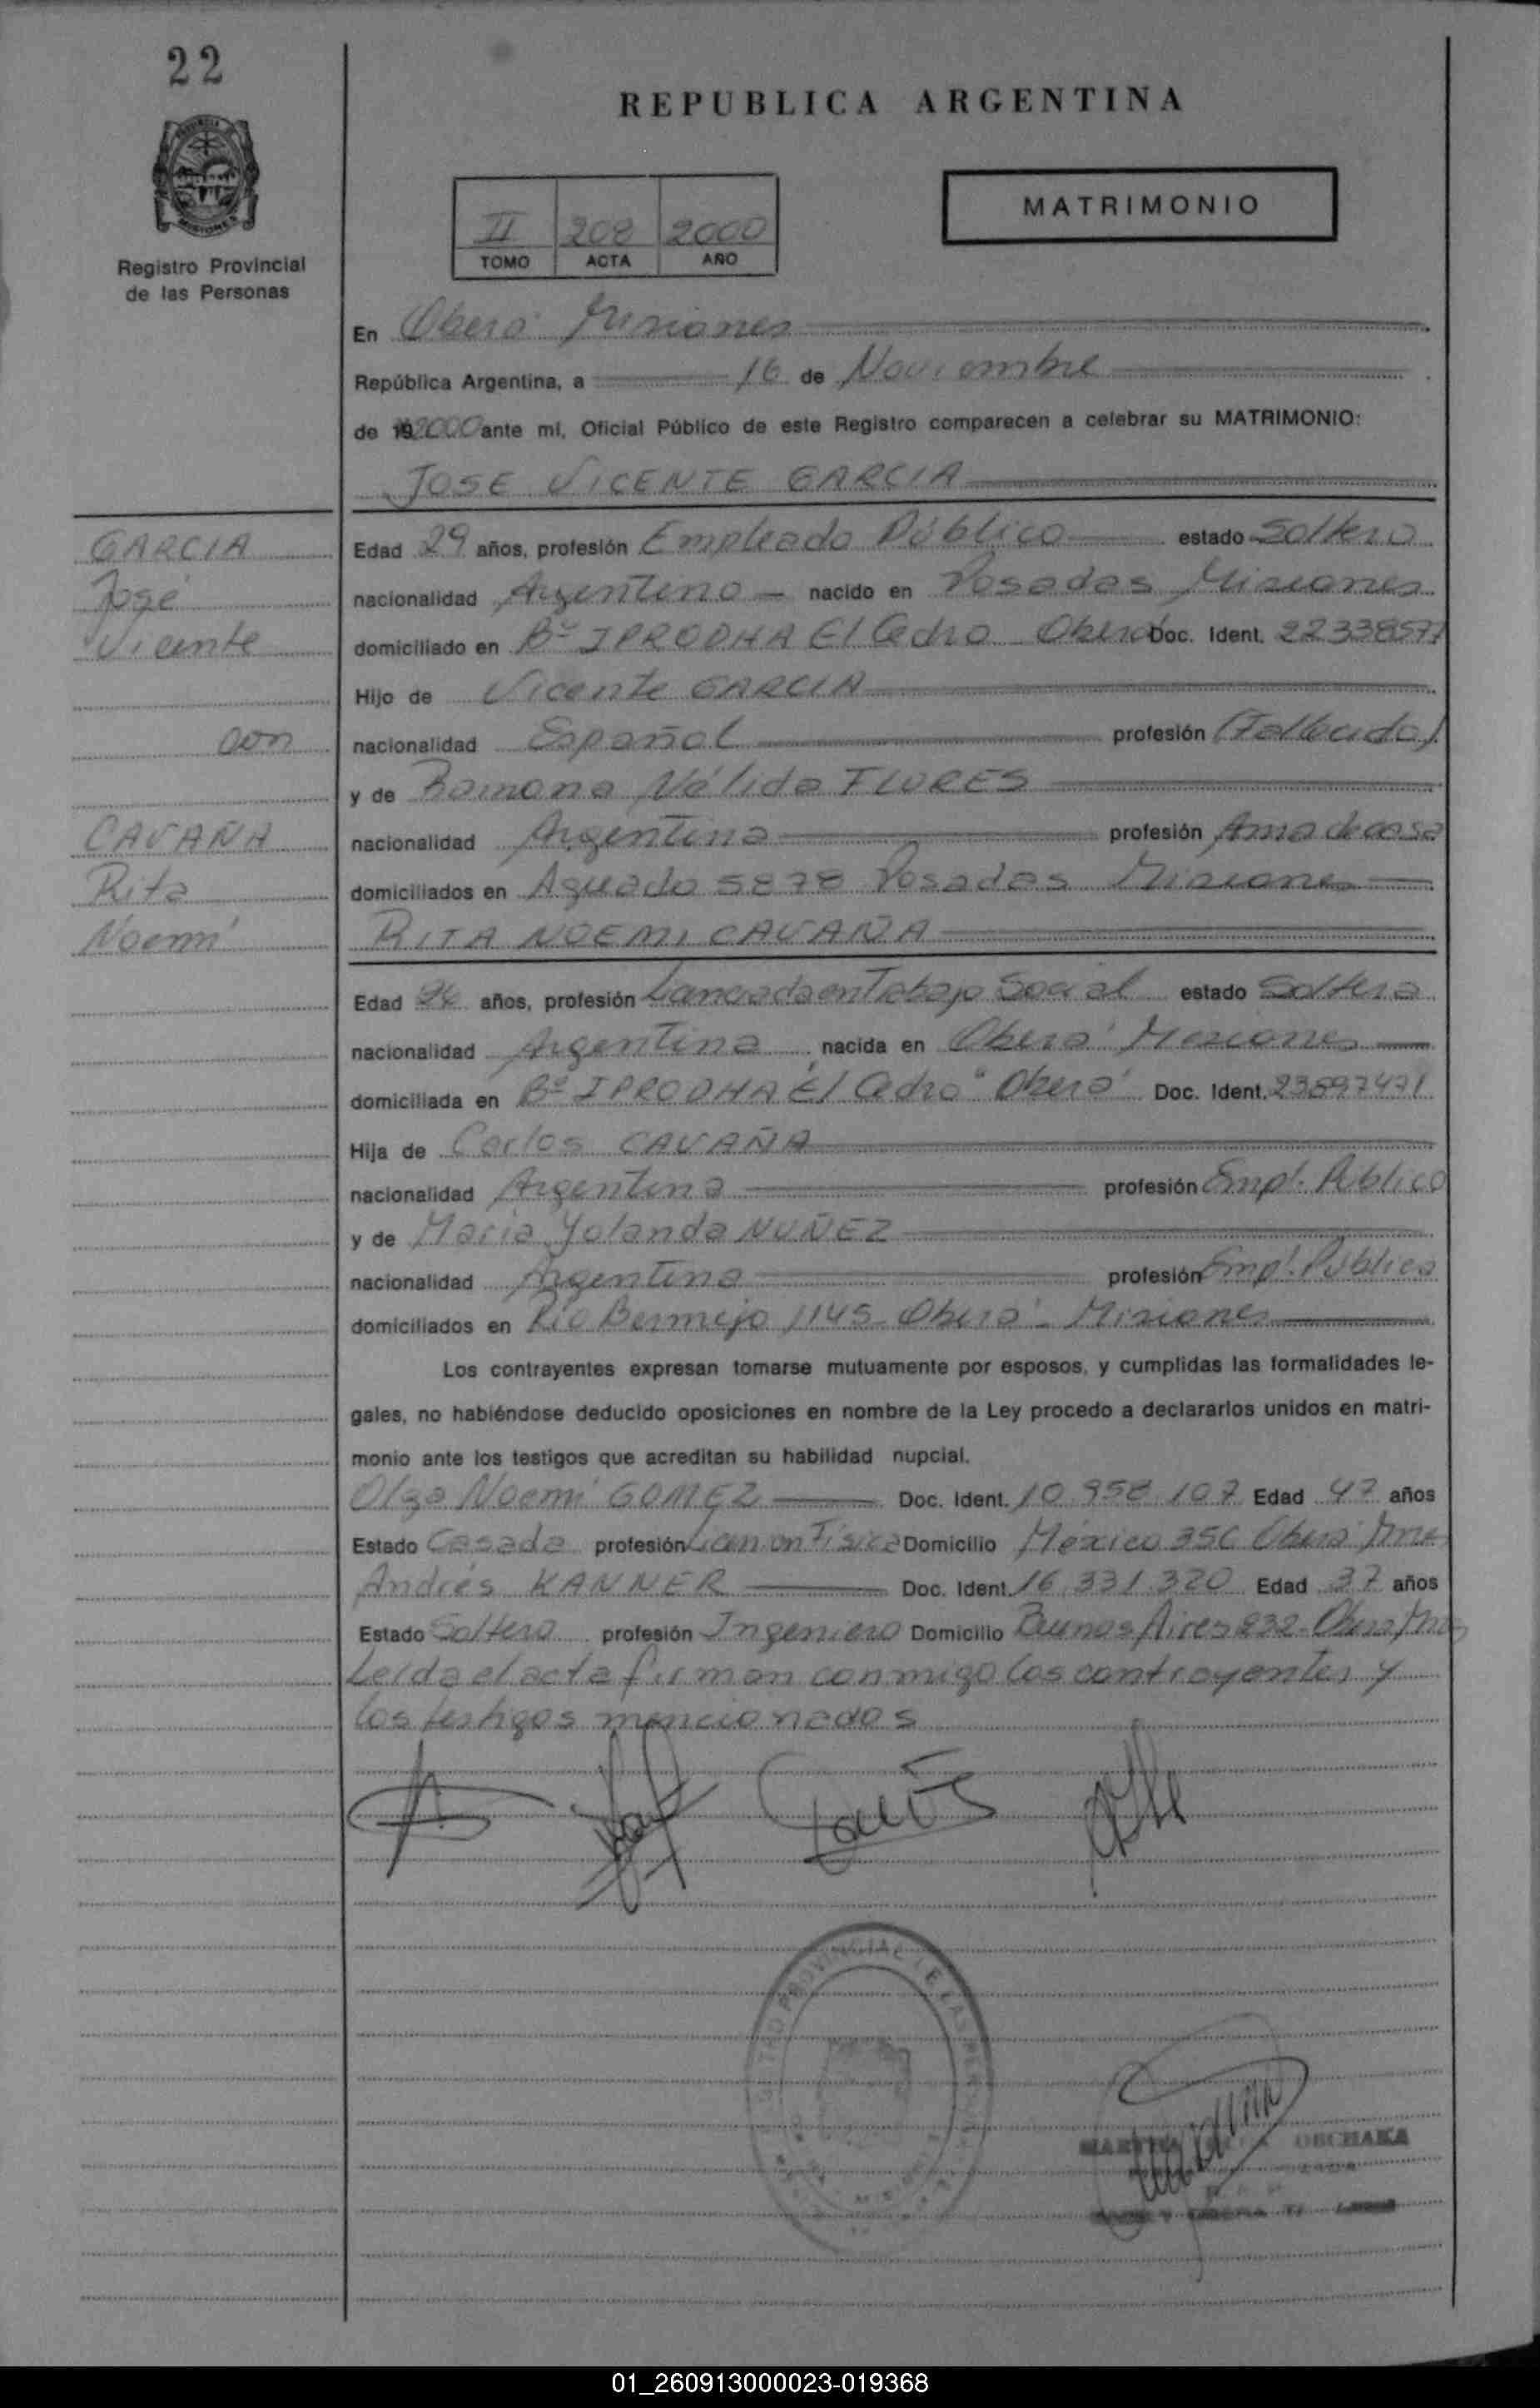 22
REPUBLICA ARGENTINA
MISIONES
Registro Provincial
de las Personas
MATRIMONIO
II 208 2000
TOMO ACTA AÑO
En Oberá Misiones
República Argentina, a 16 de Noviembre
de 19 2000 ante mí, Oficial Público de este Registro comparecen a celebrar su MATRIMONIO:
JOSE VICENTE GARCIA
GARCIA
José
Vicente
con
CAVAÑA
Rita
Noemí
Edad 29 años, profesión Empleado Público estado Soltero
nacionalidad Argentino nacido en Posadas Misiones
domiciliado en Bº IPRODHA El Cedro Oberá Doc. Ident. 22338577
Hijo de Vicente GARCIA
nacionalidad Español profesión (Fallecido)
y de Ramona Nélida FLORES
nacionalidad Argentina profesión Ama de casa
domiciliados en Aguado 5878 Posadas Misiones
RITA NOEMI CAVAÑA
Edad 26 años, profesión en Trabajo Social estado Soltera
nacionalidad Argentina nacida en Oberá Misiones
domiciliada en Bº IPRODHA El Cedro" Oberá Doc. Ident. 23897471
Hija de Carlos CAVAÑA
nacionalidad Argentina profesión Empl. Publico
y de Maria Yolanda NUÑEZ
nacionalidad Argentina profesión Empl. Público
domiciliados en Río Bermejo 1145 - Oberá - Misiones
Los contrayentes expresan tomarse mutuamente por esposos, y cumplidas las formalidades le-
gales, no habiéndose deducido oposiciones en nombre de la Ley procedo a declararlos unidos en matri-
monio ante los testigos que acreditan su habilidad nupcial.
Olga Noemí GOMEZ Doc. Ident. 10.958.107 Edad 47 años
Estado Casada profesión Licen. en Física Domicilio México 356 Oberá Mnes
Andrés KANNER Doc. Ident. 16.331.320 Edad 37 años
Estado Soltero profesión Ingeniero Domicilio Buenos Aires 832 - Oberá Mnes
Leída el acta firman conmigo los contrayentes y
los testigos mencionados
PROVINCIAL DE LAS
OBCHAKA
01_260913000023-019368